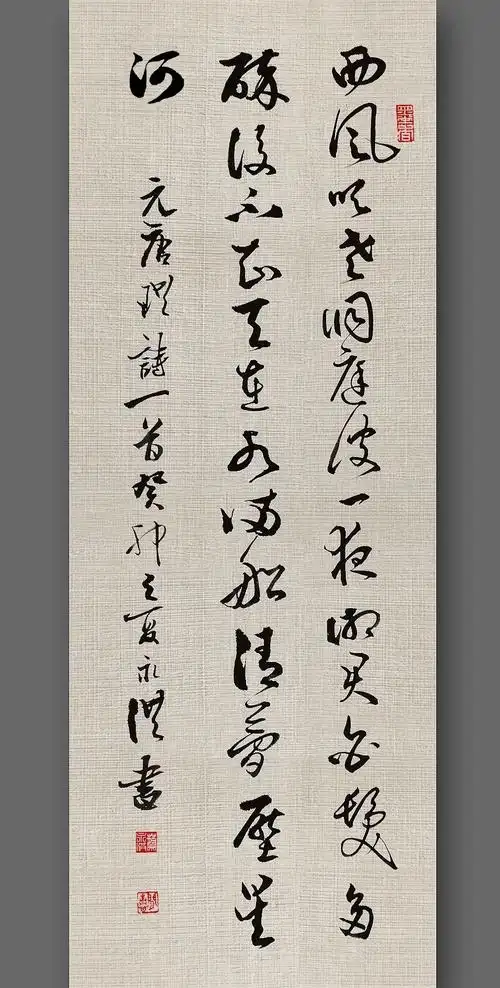 西風吹老洞庭波一夜湘君白髮多
醉後不知天在水滿船清夢壓星
河
元唐珙詩一首癸卯之夏永洪書